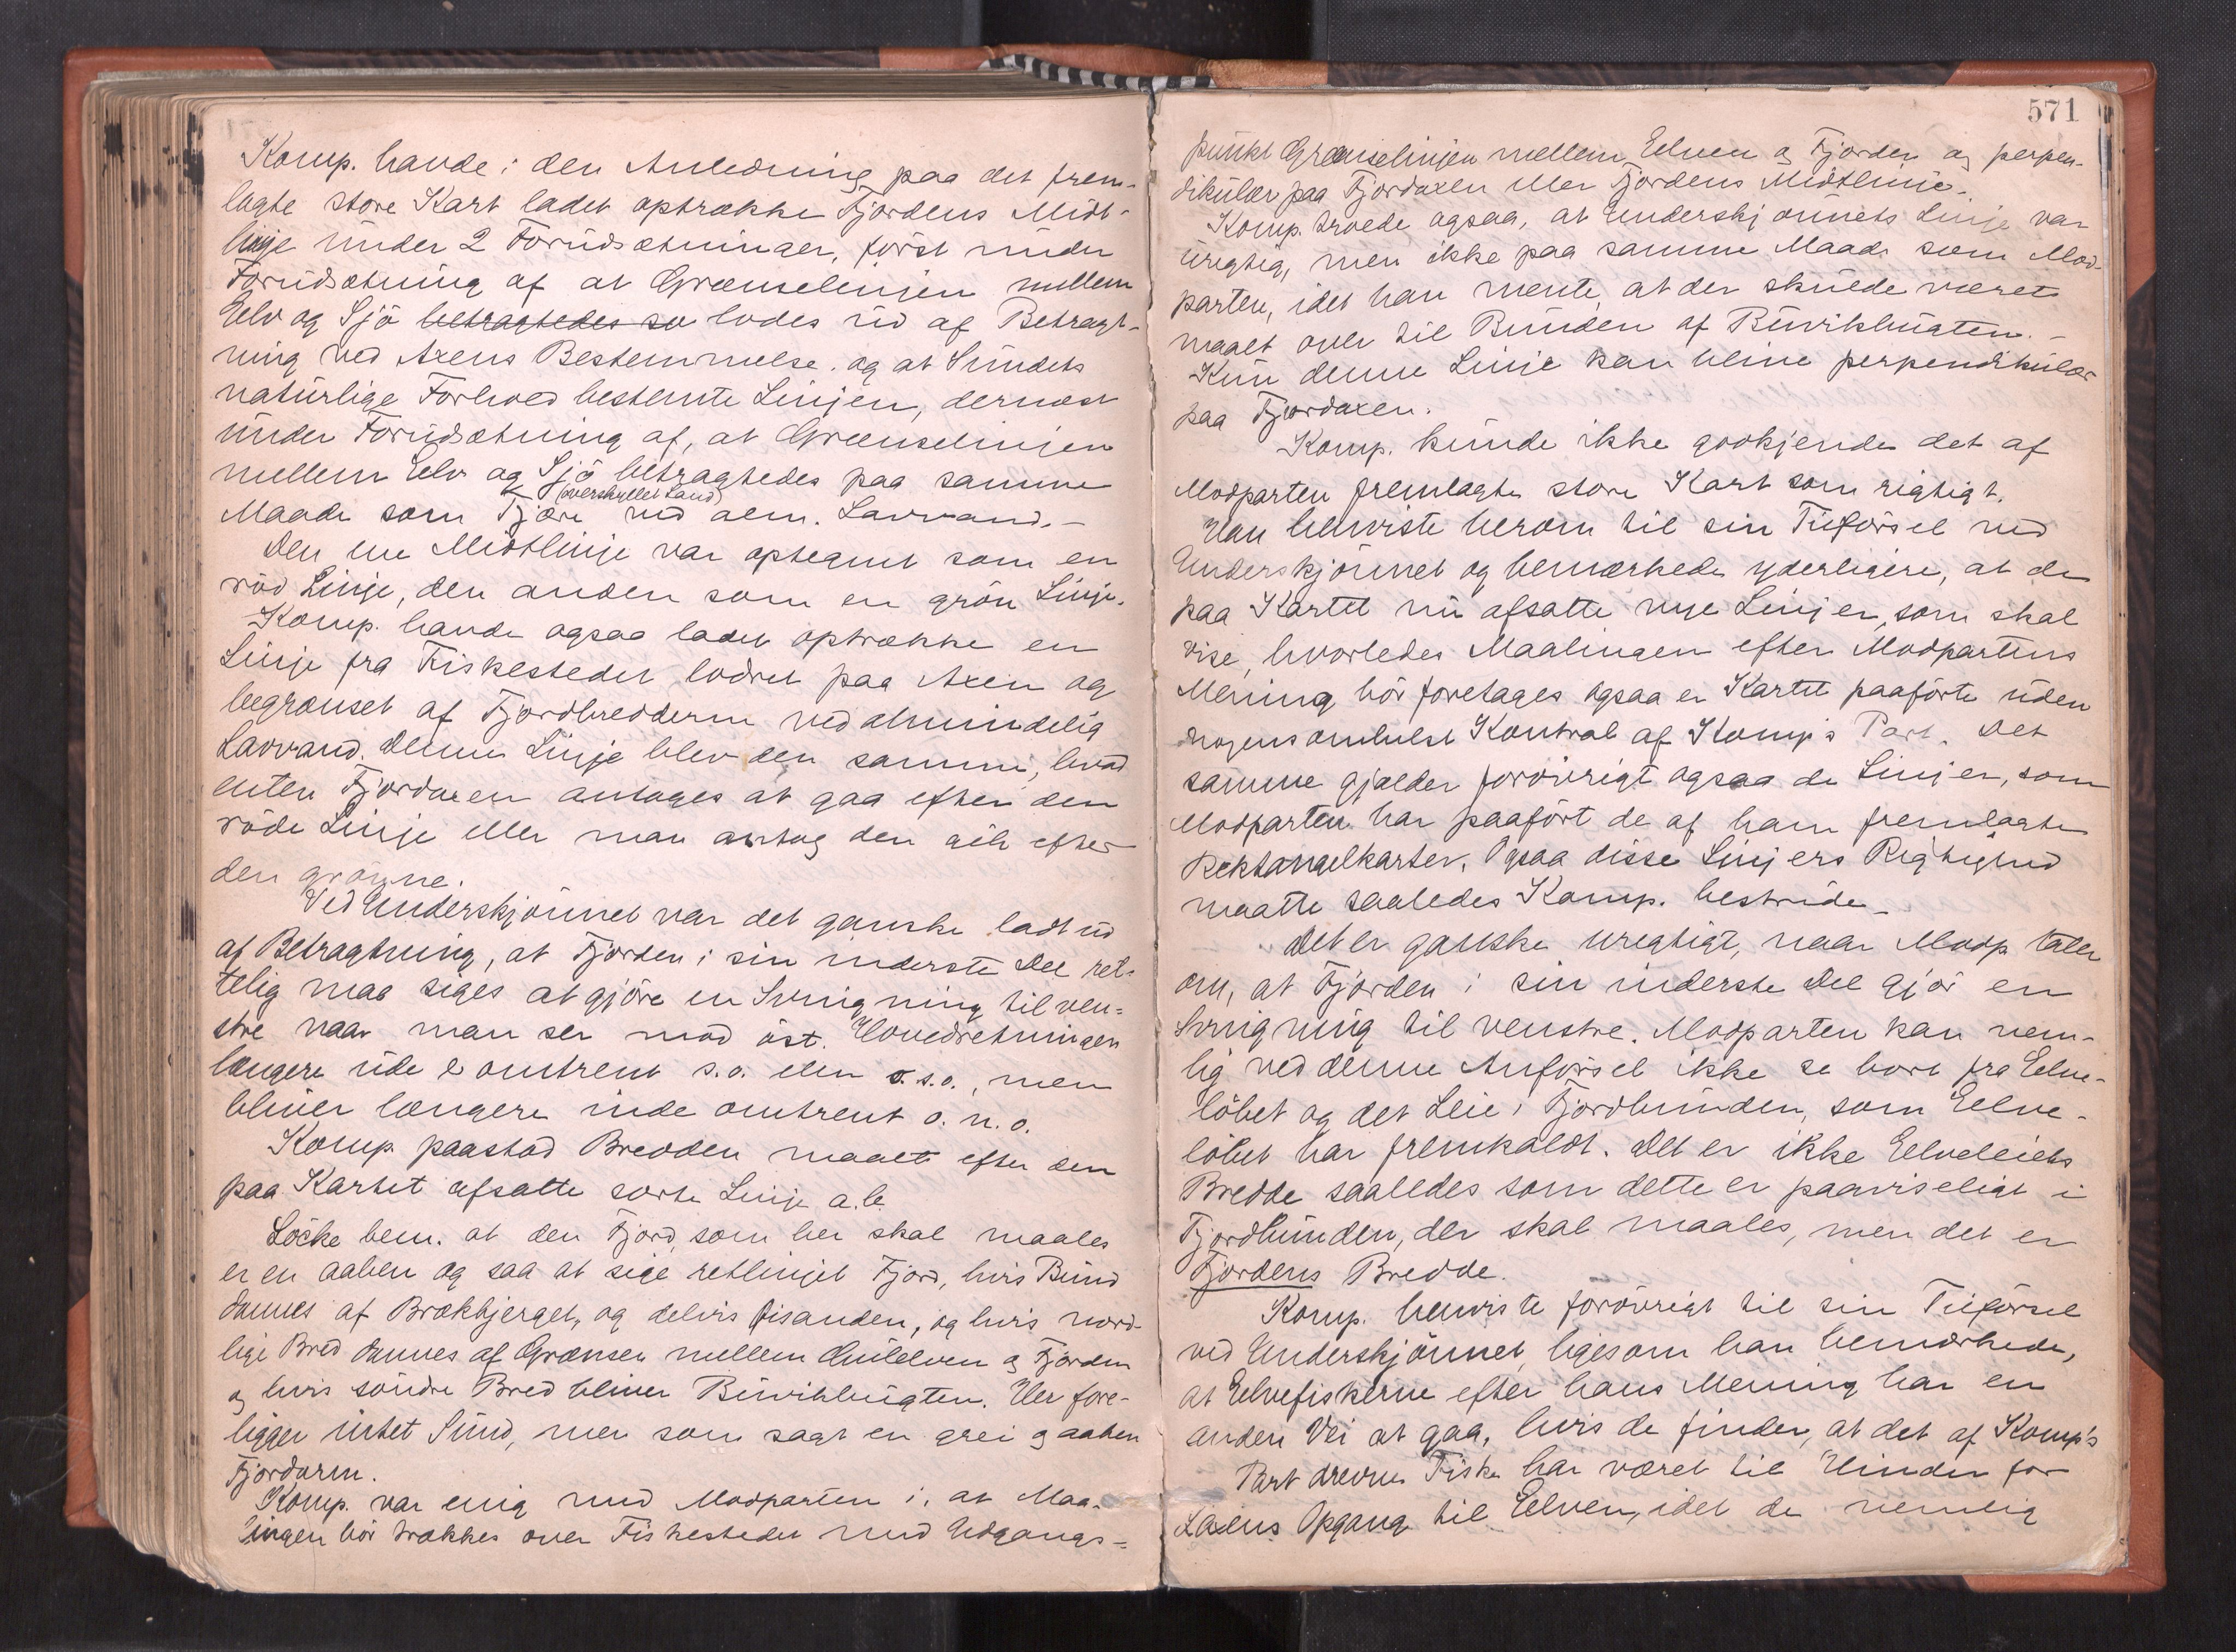 Komp. havde i den Anledning paa det frem-
lagte store Kart ladet optrække Fjordens Midt-
linje under 2 Forudsætninger, först under
Forudsætning af at Grænselinjen mellem
Eelv og Sjö betragtedes so lodes ud af Betragt-
ning ved Axens Bestemmelse og at Sundets
naturlige Forhold bestemte Linjen, dernæst
under Forudsætning af, at Grænselinjen
mellem Eelv og Sjö betragtedes paa samme
(overskyllet Land)
Maade som Fjære ved alm. Lavvand. –
Den ene Midtlinje var optegnet som en
röd Linje, den anden som en grön Linje.
Komp. havde ogsaa ladet optrække en
Linje fra Fiskestedet lodret paa Axen og
begrænset af Fjordbredderne ved almindelig
Lavvand. Denne Linje blev den samme, hvad
enten Fjordaxen antages at gaa efter den
röde Linje eller man antog den gik efter
den grönne.
Ved Underskjönnet var det ganske ladt ud
af Betragtning, at Fjorden i sin inderste Del ret-
telig maa siges at gjöre en Svingning til ven-
stre naar man ser mod öst. Hovedretningen
længere ude er omtrent s.o. eller o.s.o., men
bliver længere inde omtrent o.n.o.
Komp. paastod Bredden maalt efter den
paa Kartet afsatte sorte Linje a.b.
Löcke bem. at den Fjord, som her skal maales
er en aaben og saa at sige retlinjet Fjord, hvis Bund
dannes af Brækbjerget, og delvis Öisanden, og hvis nord-
lige Bred dannes af Grænsen mellem Guldelven og Fjorden
og hvis söndre Bred bliver Buvikbugten. Her fore-
ligger intet Sund, men som sagt en grei og aaben
Fjordarm.
Komp. var enig med Modparten i, at Maa-
lingen bör trækkes over Fiskestedet med Udgangs-
571
punkt Grænselinjen mellem Eelven og Fjorden og perpen-
dikulær paa Fjordaxen eller Fjordens Midtlinie.
Komp. troede ogsaa, at Underskjönnets Linje var
urigtig, men ikke paa samme Maade som Mod-
parten, idet han mente, at der skulde været
maalt over til Bunden af Buvikbugten. –
Kun denne Linje kan blive perpendikulær
paa Fjordaxen.
Komp. kunde ikke godkjende det af
Modparten fremlagte store Kart som rigtigt.
Han henviste herom til sin Tilförsel ved
Underskjönnet og bemærkede yderligere, at de
paa Kartet nu afsatte nye Linjer, som skal
vise, hvorledes Maalingen efter Modpartens
Mening bör foretages ogsaa er Kartet paaförte uden
nogensomhelst Kontrol af Komp's Part. Det
samme gjælder forövrigt ogsaa de Linjer, som
Modparten har paafört de af ham fremlagte
Rektangelkarter. Ogsaa disse Linjers Rigtighed
maatte saaledes Komp. bestride. –
Det er ganske urigtigt, naar Modp. taler
om, at Fjorden i sin inderste Del gjör en
Svingning til venstre. Modparten kan nem-
lig ved denne Anförsel ikke se bort fra Eelve-
löbet og det Leie i Fjordbunden, som Eelve-
löbet har fremkaldt. Det er ikke Eelveleiets
Bredde saaledes som dette er paaviseligt i
Fjordbunden, der skal maales, men det er
Fjordens Bredde.
Komp. henviste forövrigt til sin Tilförsel
ved Underskjönnet ligesom han bemærkede,
at Eelvefiskerne efter hans Mening har en
anden Vei at gaa, hvis de finder, at det af Komp's
Part drevne Fiske har været til Hinder for
Laxens Opgang til Eelven, idet de nemlig